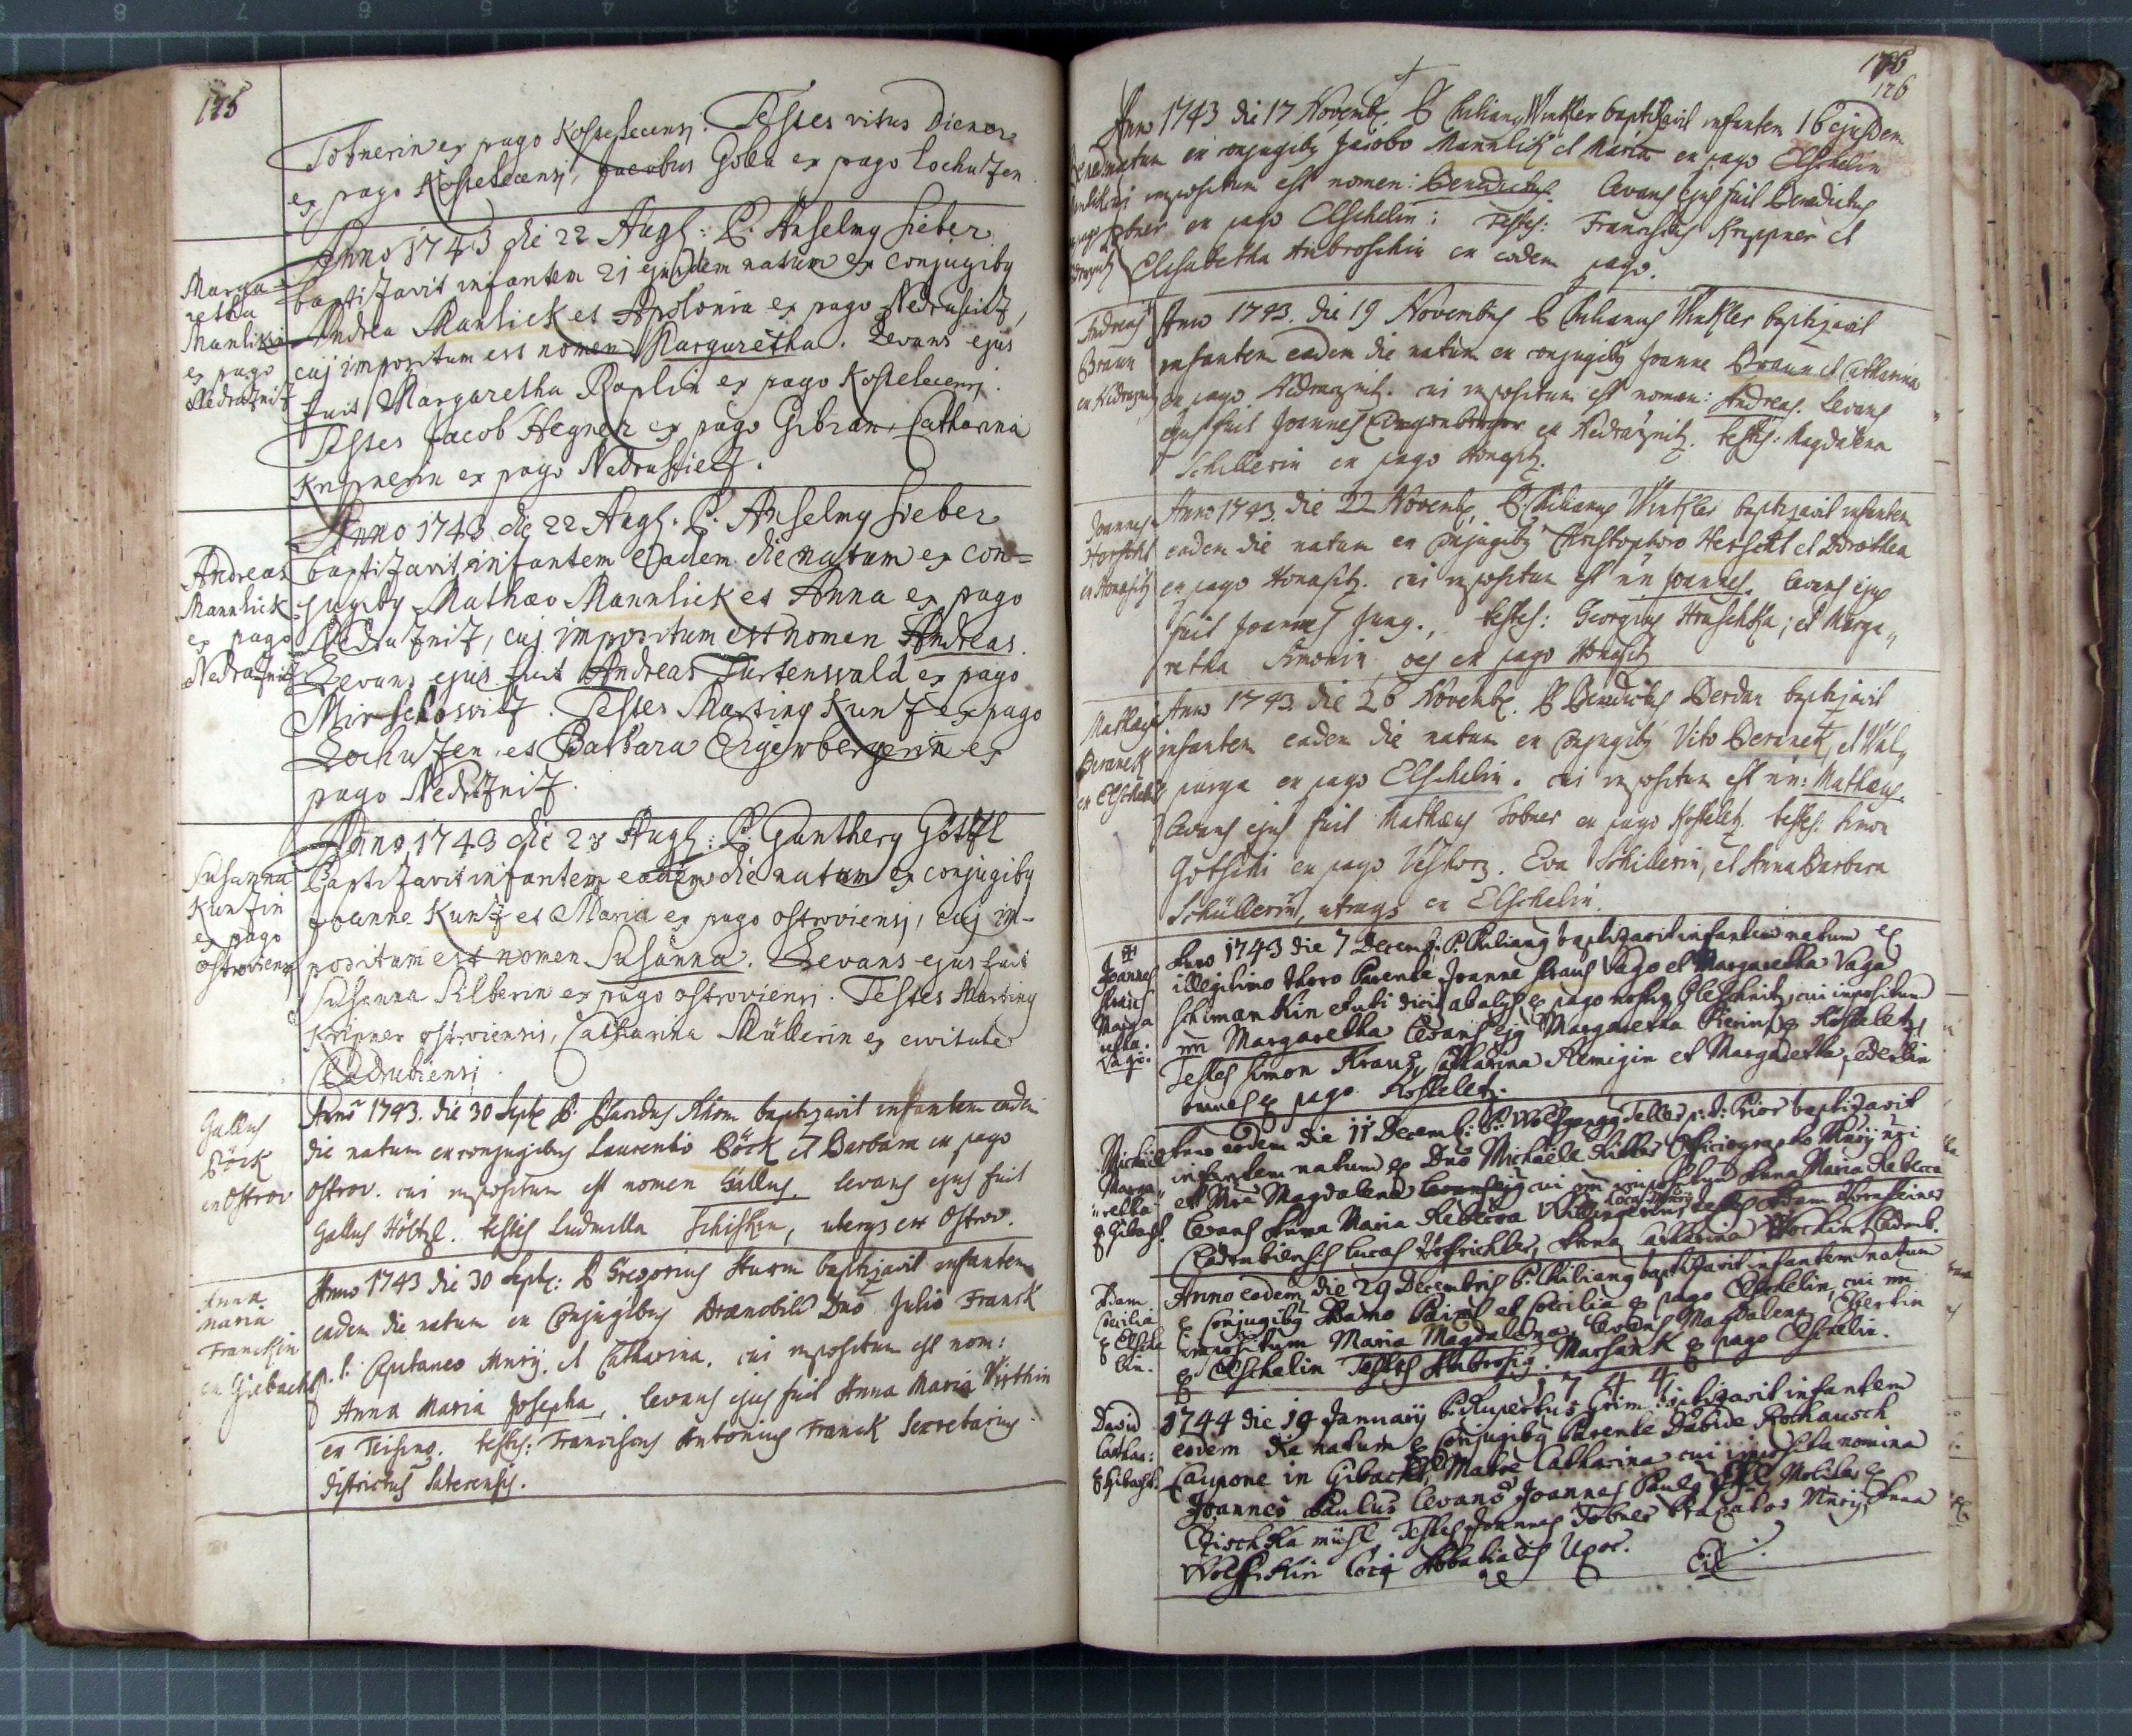 175
Tobnerin ex pago Kostelecensj. Testes vitus Diener
ex pago Kostelecensj, Jacobus Goba ex pago Lochutzen
Marga
retha
Manlikin
ex pago
Nedraznitz
Anno 1743 die 22 Augs: P. Anselmg Sieber
baptizavit infantem 21 ejusdem natum ex conjugibg
Andrea Manlick et Apolonia ex pago
cuj impositum est nomen Margaretha. Levans ejus
fuit Margaretha ex pago Kostelecensj.
Testes Jacob Hegner ex pago Gibian, Catharina
Kripnerin ex pago
Andreas
Mannlick
ex pago
Nedraznitz
Anno 1743 die 22 Augs. P. Anselmg Sieber
baptizavit infantem eadem die natum ex con=
jugibg Mathæo Mannlick et Anna ex pago
Nedraznitz, cuj impositum est nomen Andreas.
Levans ejus fuit Andreas Furtenwald ex pago
Mirschowitz. Testes Marting Kuntz ex pago
Lochutzen, et Barbara Eigenbergerin ex
pago Nedraznitz.
Susanna
Kuntzin
ex pago
ostroviensj
Anno 1743 die 23 Augs: P. Guntherg Göttzl
Baptizavit infantem eadem die natam ex conjugibg
Joanne Kuntz et Maria ex pago ostroviensj, cuj im-
positum est nomen Susanna. Levans ejus fuit
Susanna Silberin ex pago ostroviensi. Testes Marting
Kripner ostroviensis, Catharina Müllerin ex civitate
Cladrubiensj
Gallus
Böck
ex Ostrov
Anno 1743. die 30 Septe P. baptizavit infantem eadem
die natum ex conjugibus Laurentio Böck et Barbara ex pago
Ostrov. cui impositum est nomen Gallus. levans ejus fuit
Gallus Höltzl. testes Ludmilla Schiskin, ex Ostrov.
Anna
Maria
Franckin
ex Gibacht
Anno 1743 die 30 Septe: P Gregorius Sturm baptizavit infantem
eadem die natum ex Conjugibus Prænobili Dno Julio Franck
p. t. Capitaneo Mnrij. et Catharina. cui impositum est nom:
Anna Maria Josepha, levans ejus fuit Anna Maria Wirthin
ex Teising. testes: Franciscus Antonius Franck Secretarius
districtus Satecensis.
176
126
Ano 1743 die 17 Novembr. P Chiliang Winkler baptizavit infantem 16 ejusdem
natum ex conjugibg Jacobo Mannlick et Maria ex pago Elschelin
cui impositum est nomen: Benedictus. levans ejus fuit Benedictus
Tobner ex pago Elschelin: Testes: Franciscus Krippner et
Elisabetha Ambroschin ex eodem pago.
Andreas
Braun
ex Nedraznit
Ano 1743. die 19 Novembris P Chilianus Winkler baptizavit
infantem eadem die natum ex conjugibg Joanne Braun et Catharina
ex pago Nedraznit. cui impositum est nomen: Andreas. levans
ejus fuit Joannes Eingenberger ex Nedraznitz. testes: Magdalena
Schillerin ex pago Honasitz.
Joannes
Herschl
ex Honasitz
Anno 1743. die 22 Novembr. P. Chilianus Winkler baptizavit infantem
eadem die natum ex Conjugibg Christophoro Herschl et Dorothea
ex pago Honasitz. cui impositum est nn Joannes. levans ejus
fuit Joannes Jung., testes: Georgius Hruschka; et Marga„
retha Simonin oes ex pago Honasitz
Mathæus
Beraneck
ex Elschelin
Anno 1743. die 26 Novembr. P Benedictus Berdan baptizavit
infantem eadem die natum ex Conjugibg Vito Beraneck, et Wal„
purga ex pago Elschelin. cui impositum est nn: Mathæus.
levans ejus fuit Mathæus Tobner ex pago Kosteletz. testes: Simon
Gotschi ex pago Eva Schillerin, et Anna Barbara
Schüllerin, ex Elschelin.
Joannes
Kraus
Marga
retha
Vagi.
Anno 1743 die 7 Decemb: P. Chiliang baptizavit infantem natum ex
illegitimo thoro Parente Joanne Kraus Vago et Margaretha Vaga
Schimankin ex pago nostro cui impositum
nn Margaretha levans ejg Margaretha ex Kosteletz
Testes Simon Kraus, Catharina Remigin et Margaretha Ederlin
omnes ex pago Kosteletz.
Michael
Marga„
„retha
ex Gibacht.
Anno eodem die 11 Decemb: P. Wolfgangg Teller p. t. Prior baptizavit
infantem natum ex Dno Michaële Ritter Officiographo Mnrij nri
et Mria Magdalena cui nn impositum Anna Maria Rebecca
levans Anna Maria Rebecca testes Adam Kornsteiner
Cladrubiensis Lucas Hofrichter, Anna Catharina Cladrub.
Adam
Cæcilia
ex Elsche
lin.
Anno eodem die 29 Decembris P. Chiliang baptizavit infantem natum
ex Conjugibg Adamo et Cæcilia ex pago Elschelin, cui nn
impositum Maria Magdalena, levans Magdalena Ebertin
ex Elschelin Testes Ambrosig Marsank ex pago Elschelin.
1 7 4 4
David
Cathar:
ex Gibacht.
1744 die 14 Januarij P. Rupertus Grim baptizavit infantem
eodem die natum ex Conjugibg Parente Davide Rothausch
Caupone in Gibacht, Matre Catharina cui imposita nomina
Joannes Paulus levans Joannes Paulg Molitor ex
Tischka mühl, Testes Joannes Tobner Mnrij, Anna
Wolfskin Abbatialis Uxor.